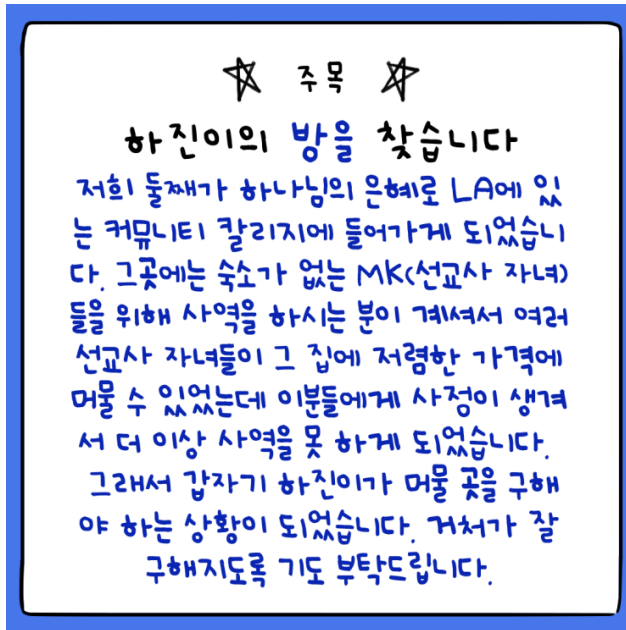 주목
하진이의 방을 찾습니다
저희 둘째가 하나님의 은혜로 LA에 있
는 커뮤니티 칼리지에 들어가게 되었습니
다. 그곳에는 숙소가 없는 MK(선교사 자녀)
들을 위해 사역을 하시는 분이 계셔서 여러
선교사 자녀들이 그 집에 저렴한 가격에
머물 수 있었는데 이분들에게 사정이 생겨
서 더 이상 사역을 못 하게 되었습니다.
그래서 갑자기 하진이가 머물 곳을 구해
야 하는 상황이 되었습니다. 거처가 잘
구해지도록 기도 부탁드립니다.